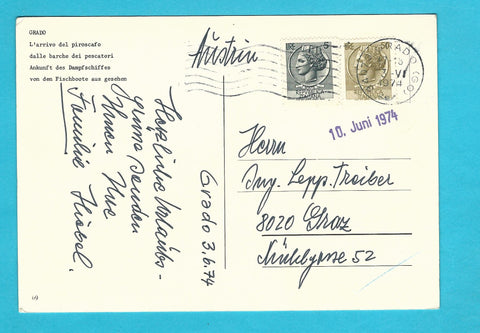 GRADO
L'arrivo del piroscafo
dalle barche dei pescatori
Ankunft des Dampfschiffes
von den Fischboote aus gesehen
Herzliche Urlaubs-
grüsse senden
Ihnen Ihre
Familie
Grado 3.6.74
Austria
10. Juni 1974
Herrn
Ing. Lepp. Treiber
8020 Graz
Mühlgasse 52
GRADO (GO)
1974
LIRE 5
LIRE 50
REPUBBLICA
ITALIANA
69